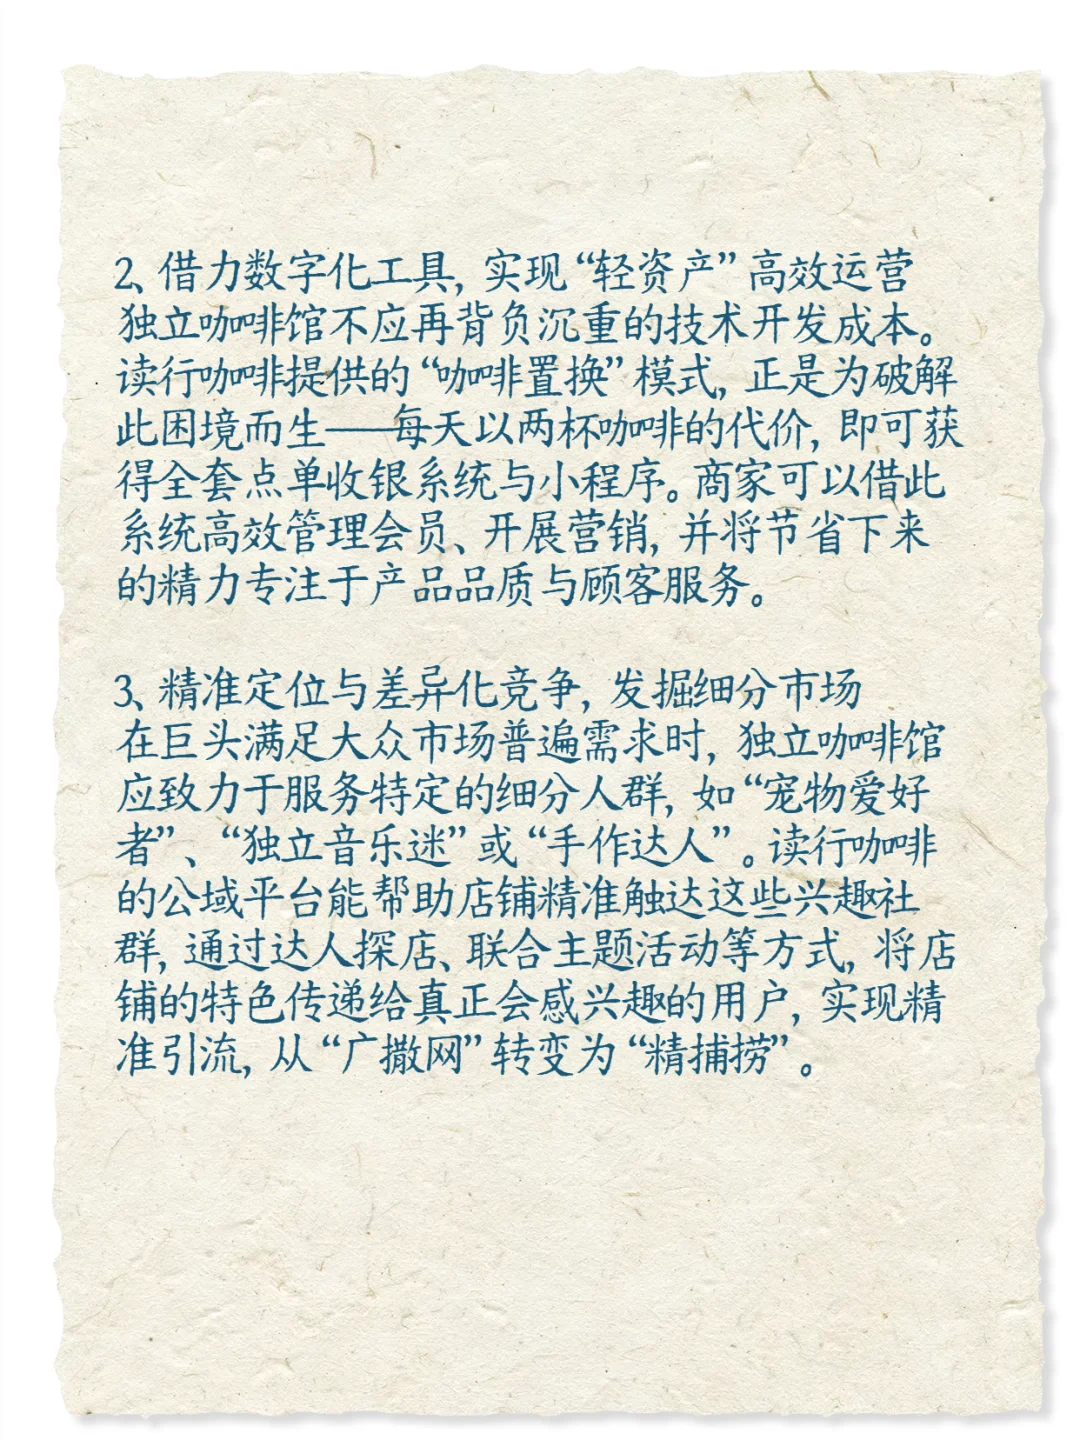 2、借力数字化工具, 实现“轻资产”高效运营
独立咖啡馆不应再背负沉重的技术开发成本。
读行咖啡提供的“咖啡置换”模式, 正是为破解
此困境而生——每天以两杯咖啡的代价, 即可获
得全套点单收银系统与小程序。商家可以借此
系统高效管理会员、开展营销, 并将节省下来
的精力专注于产品品质与顾客服务。
3、精准定位与差异化竞争, 发掘细分市场
在巨头满足大众市场普遍需求时, 独立咖啡馆
应致力于服务特定的细分人群, 如“宠物爱好
者”、“独立音乐迷”或“手作达人”。读行咖啡
的公域平台能帮助店铺精准触达这些兴趣社
群, 通过达人探店、联合主题活动等方式, 将店
铺的特色传递给真正会感兴趣的用户, 实现精
准引流, 从“广撒网”转变为“精捕捞”。